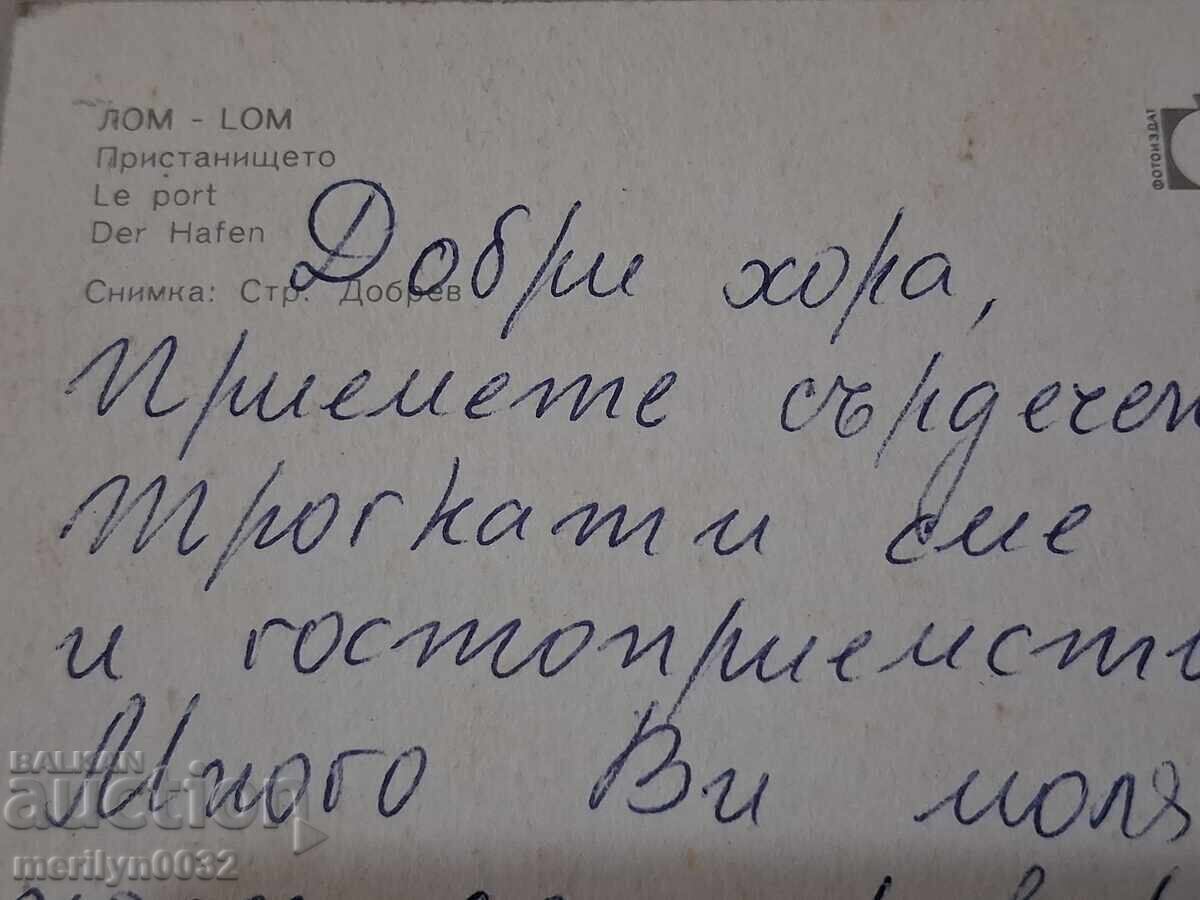 ЛОМ - LOM
Пристанището
Le port
Der Hafen
Снимка: Стр. Добрев
ФОТОИЗДАТ
Добри хора,
Приемете сърдечен
Трогнати сме
и гостоприемств
Много Ви моля
BALKAN
auction
merilyn0032